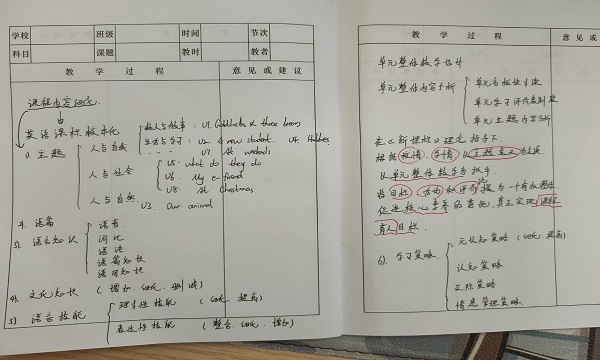 学校 班级 时间 节次
科目 课题 教时 教者
教 学 过 程 意 见 或 建 议
课程内容细化
英语课标校本化
1) 主题
人与自我
做人与做事: U1. Goldilocks & three bears
生活与学习: U2. A new student. U4. Hobbies
U7. At weekends
人与社会
U5. What do they do
U6. My e-friend
U8. At Christmas
人与自然
U3. Our animal
2. 语篇
3) 语言知识
语音
词汇
语法
语篇知识
语用知识
4) 文化知识 ( 增加. 细化. 删减 )
5) 语言技能
理解性技能 ( 细化. 提高 )
表达性技能 ( 整合. 细化. 增加 )
教 学 过 程 意 见 或
单元整体教学设计
单元整体内容分析
单元主题内容分析
在《新课标》理念指导下.
根据教情、学情 以主题意义为主线
以单元整体教学为抓手.
将目标、活动和评价
促进核心素养的落地, 真正实现课程
育人目标.
6). 学习策略
元认知策略 (细化. 提高)
认知策略
交际策略
情感管理策略